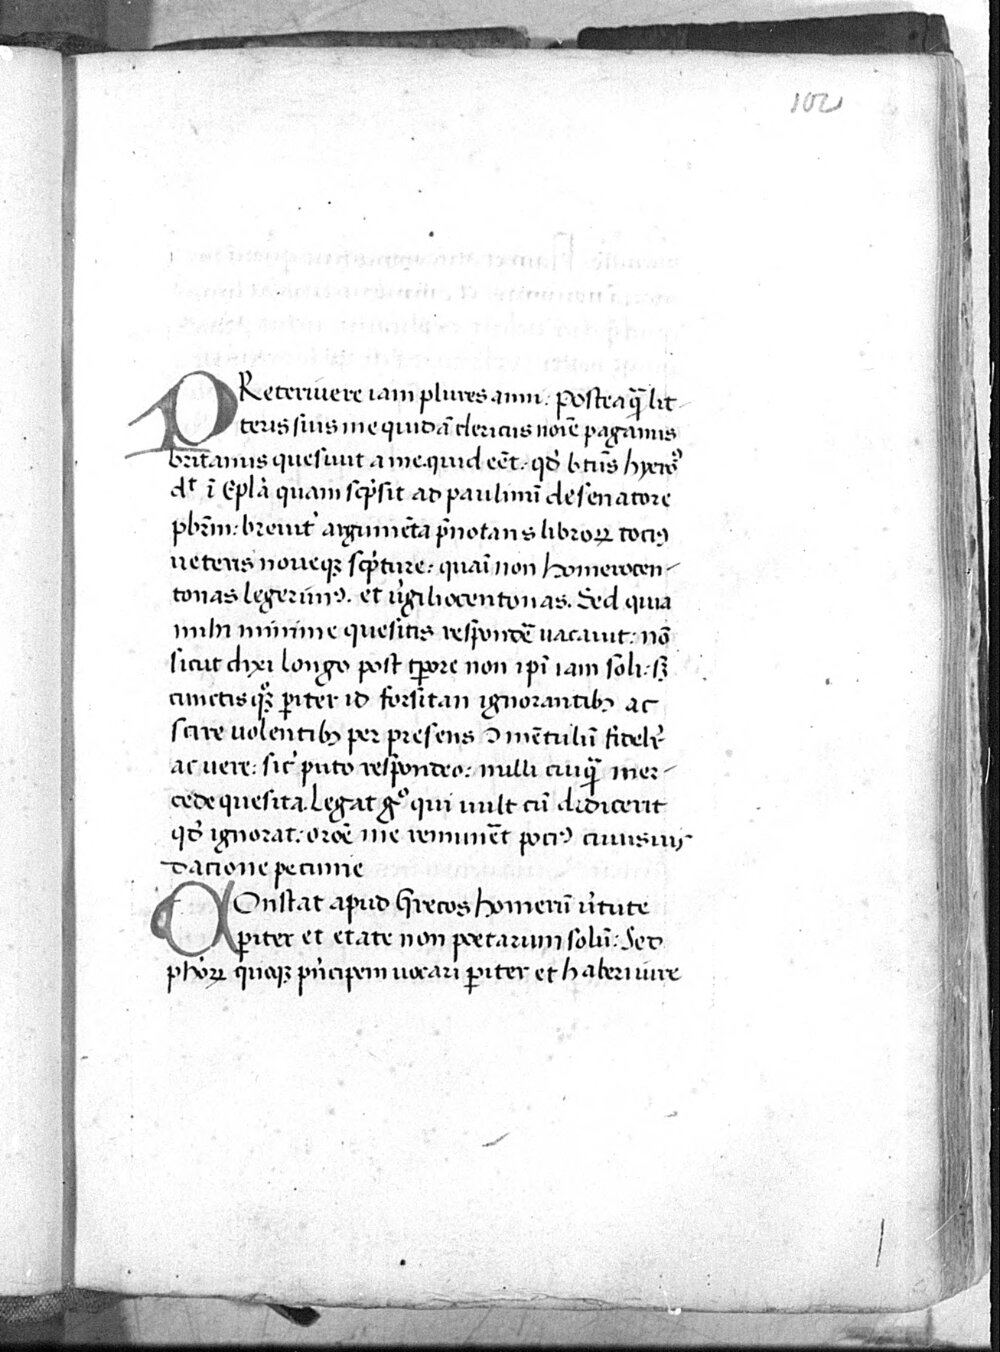 102
PReteriuere iam plures anni: Posteaq̄ lit-
teris suis me quidā clericus noīe paganus
britanus quesiuit a me. quid eēt. qđ btūs hyerō
dt ī Eplā quam scp̄sit ad paulinū de senatore
pbr̄m: breuit᷑ argumēta p̄notans libroꝝ tociꝰ
ueteris noueqꝫ scp̄ture: quāi non homerocen-
tonas legerimꝰ. et ūgiliocentonas. Sed quia
mihi minime quesitis respondē uacauit: nō
sicut dixi longo post tp̄ore non ip̄i iam soli: sꝫ
cunctis qꝫ ꝑiter id forsitan ignorantibꝫ ac
scire uolentibꝫ per presens ꝯmētulū fidelr̄
ac uere: sic᷑ puto respondeo: nulli cuiq̄ mer-
cede quesita. Legat gͦ qui uult cū didicerit
qđ ignorat: oroē me reminēt pociꝰ cuiusuis
dacione pecunie
COnstat apud Grecos homerū ūtute
ꝑiter et etate non poetarum solū: Sed
ph̄oꝝ quoqꝫ pn̄cipem uocari ꝑiter et haberi iure